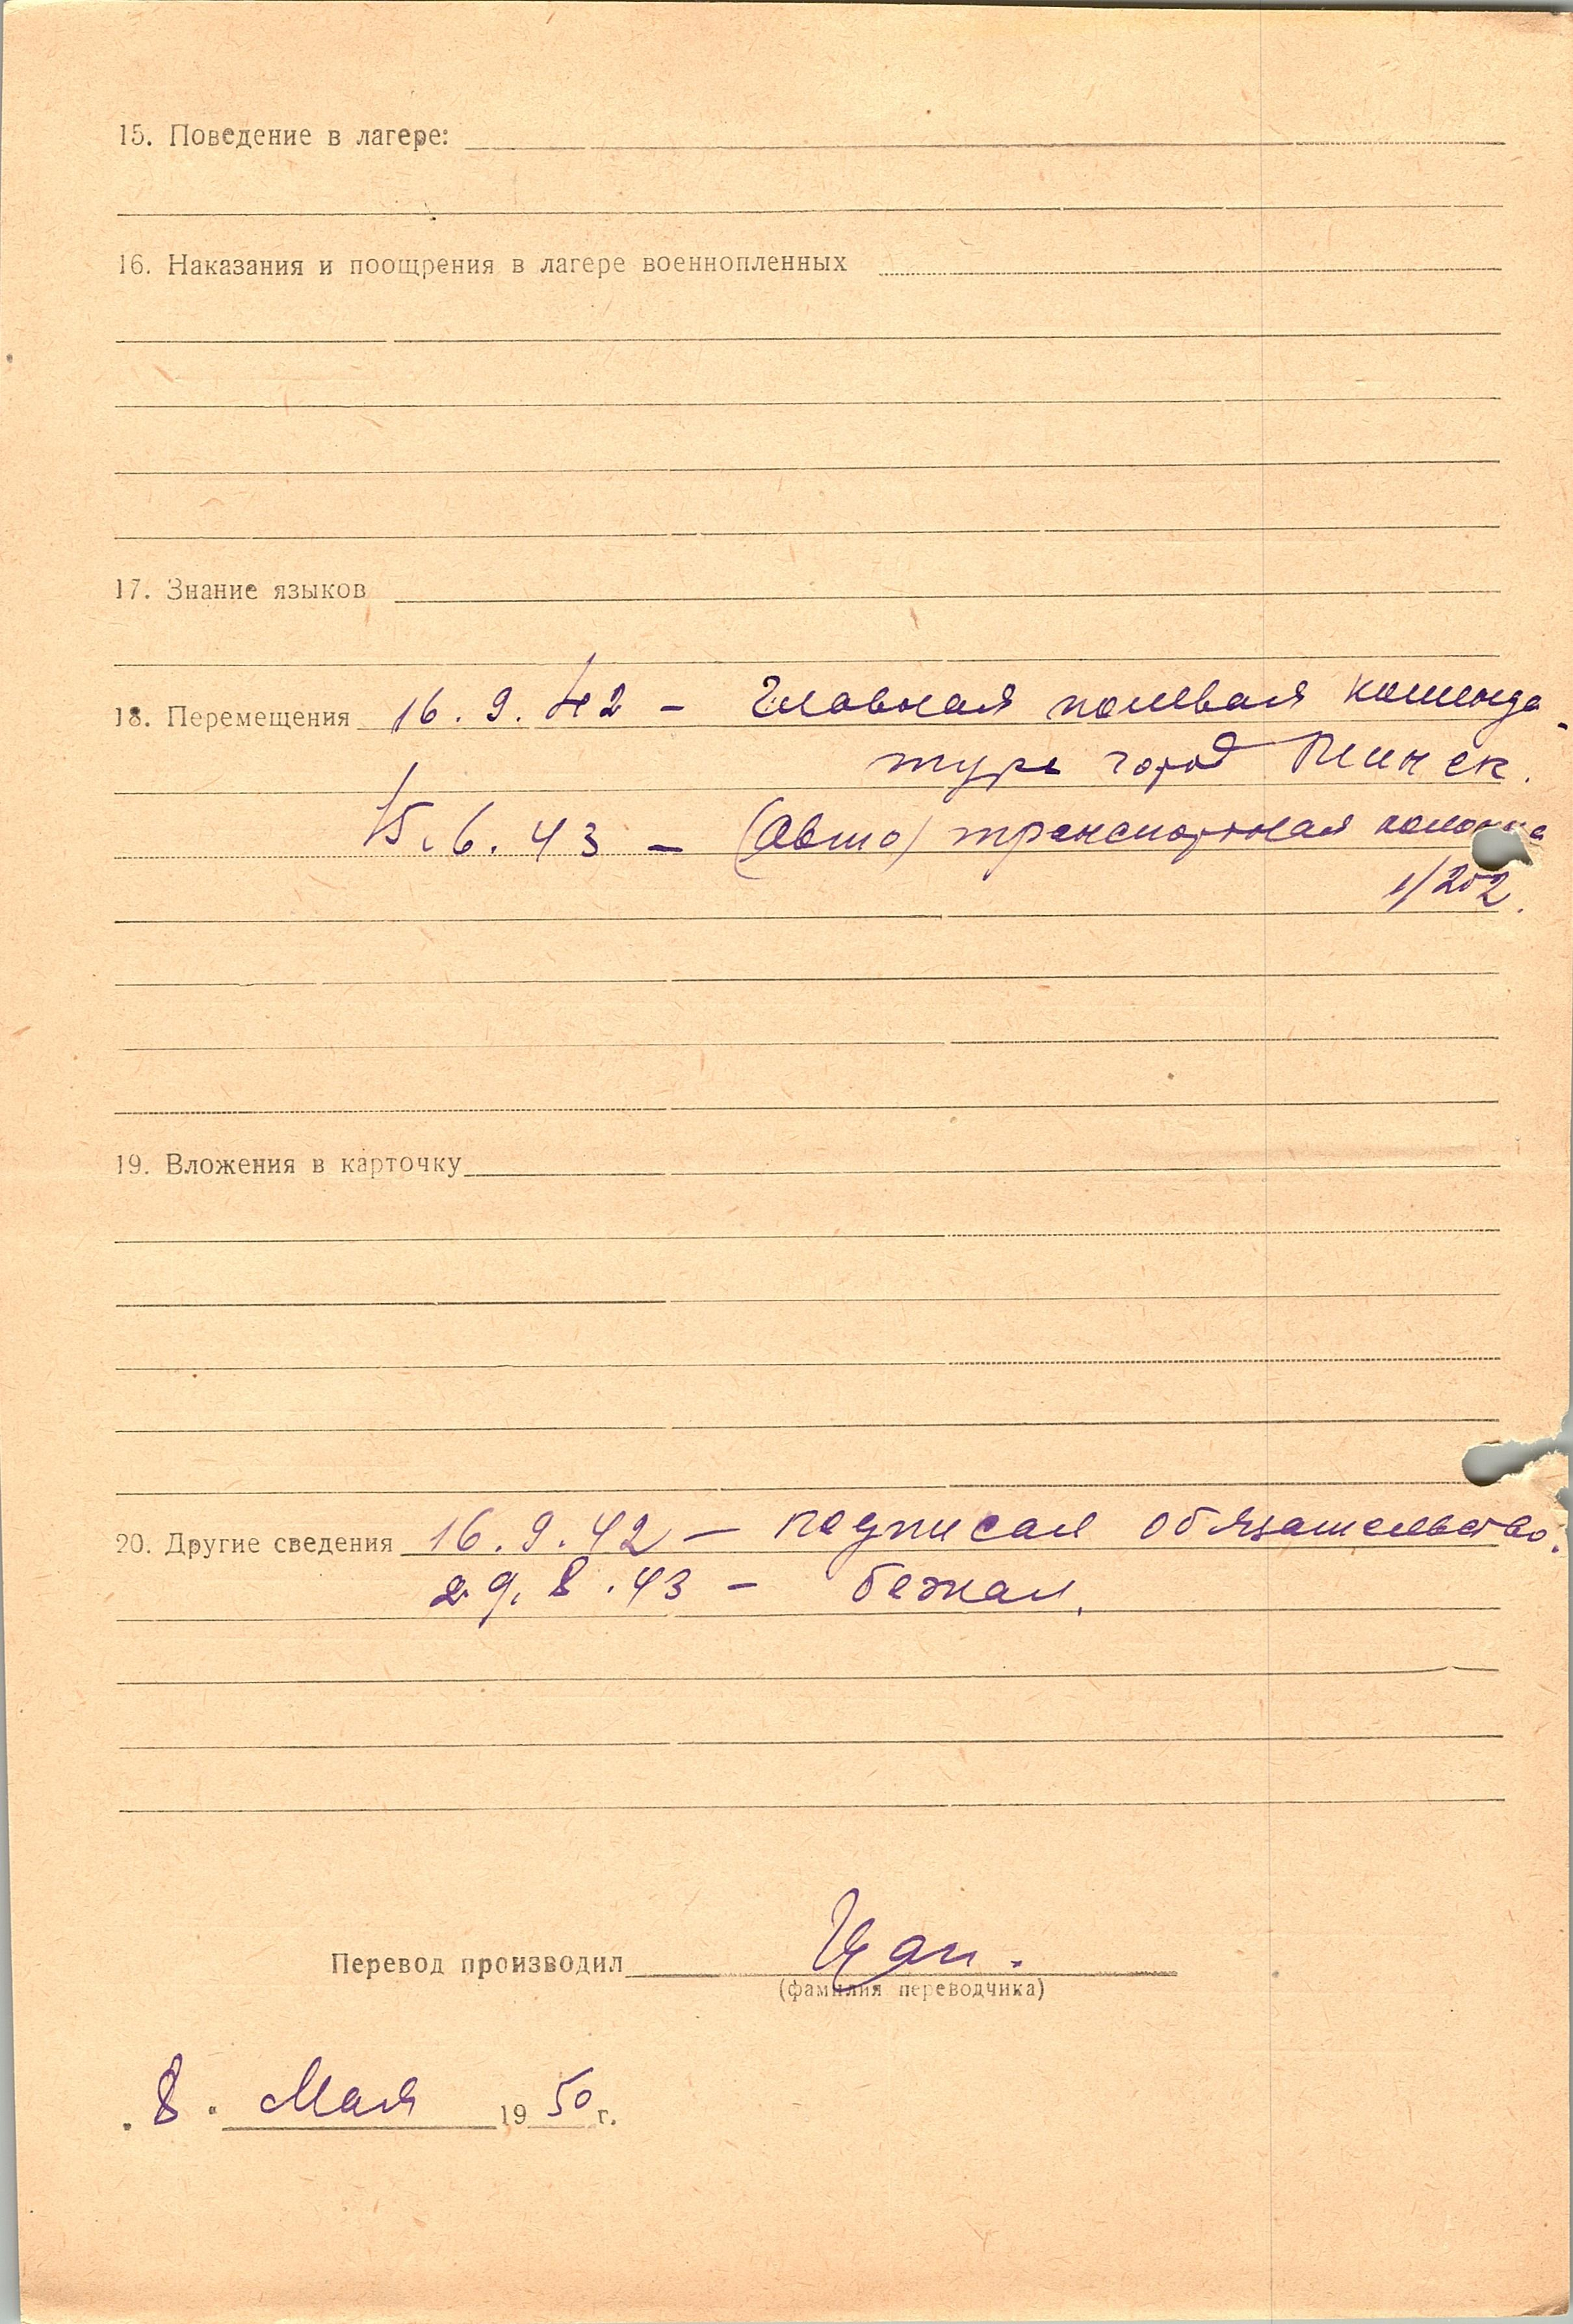 15. Поведение в лагере:
16. Наказания и поощрения в лагере военнопленных
17. Знание языков
18. Перемещения 16.9.42 – Главная полевая коменда-
тура город
15.6.43 – (Авто) транспортная колонна
1/202.
19. Вложения в карточку
20. Другие сведения 16.9.42 – подписал обязательство.
29.8.43 – бежал.
Перевод производил
(фамилия переводчика)
"8" Мая 1950 г.